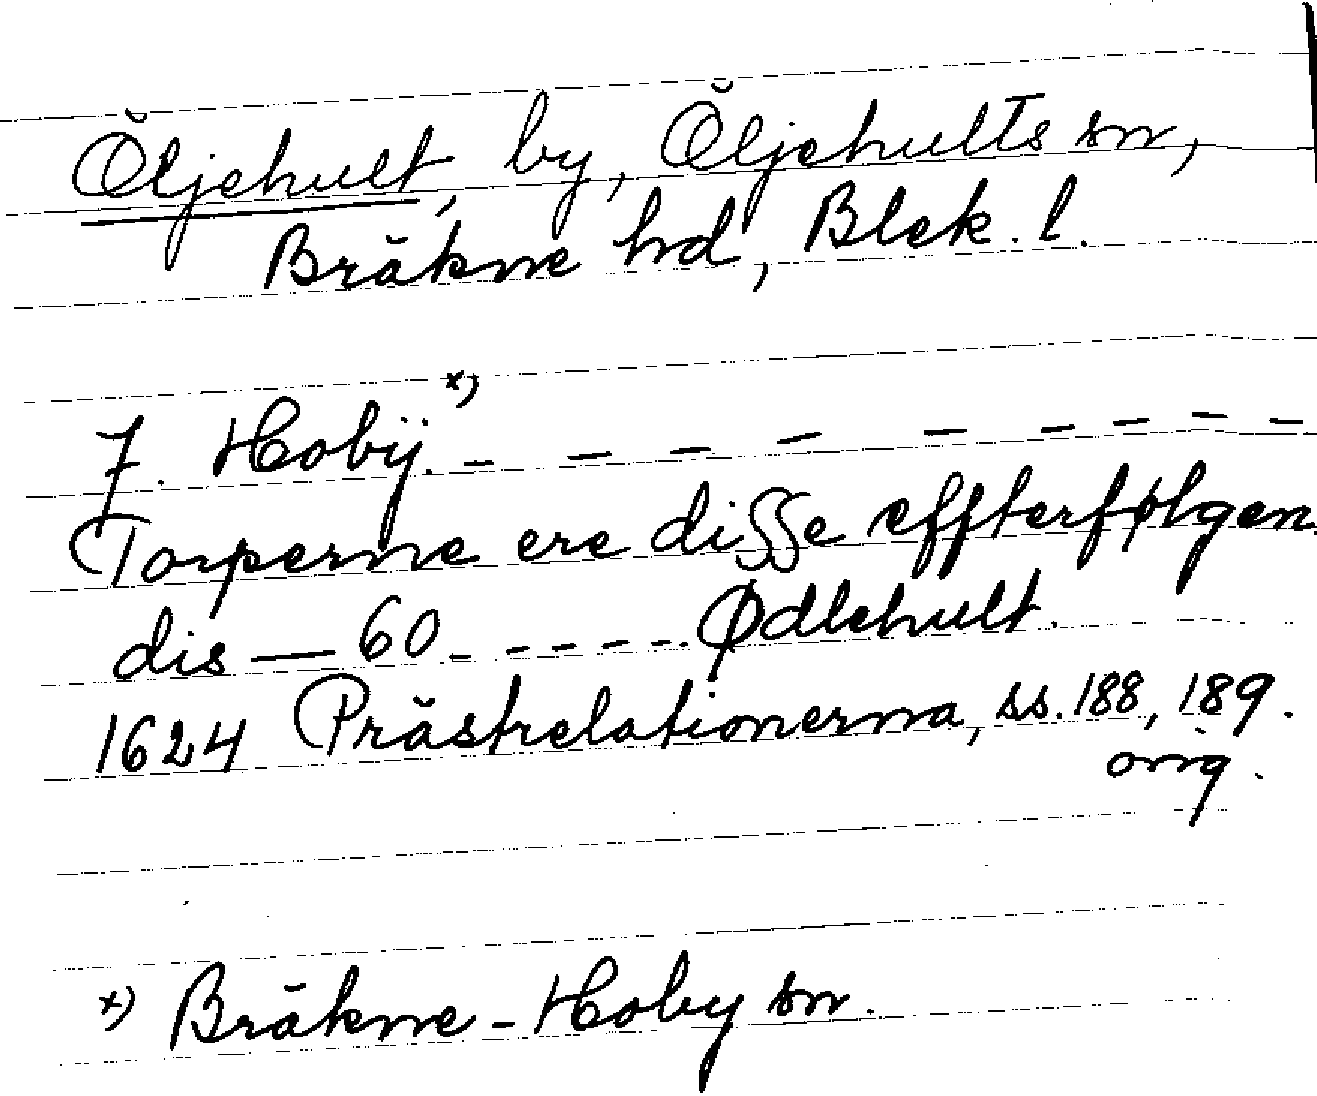 Öljehult, by, Öljehults sn,
Bräkne hd, Blek. l.
J. Hobÿ. *) — — — — — — — —
Torperne ere disse effterfølgen
dis — 60 - - - - - Ødlehult.
1624 Prästrelationerna, ss. 188, 189.
orig.
*) Bräkne-Hoby sn.